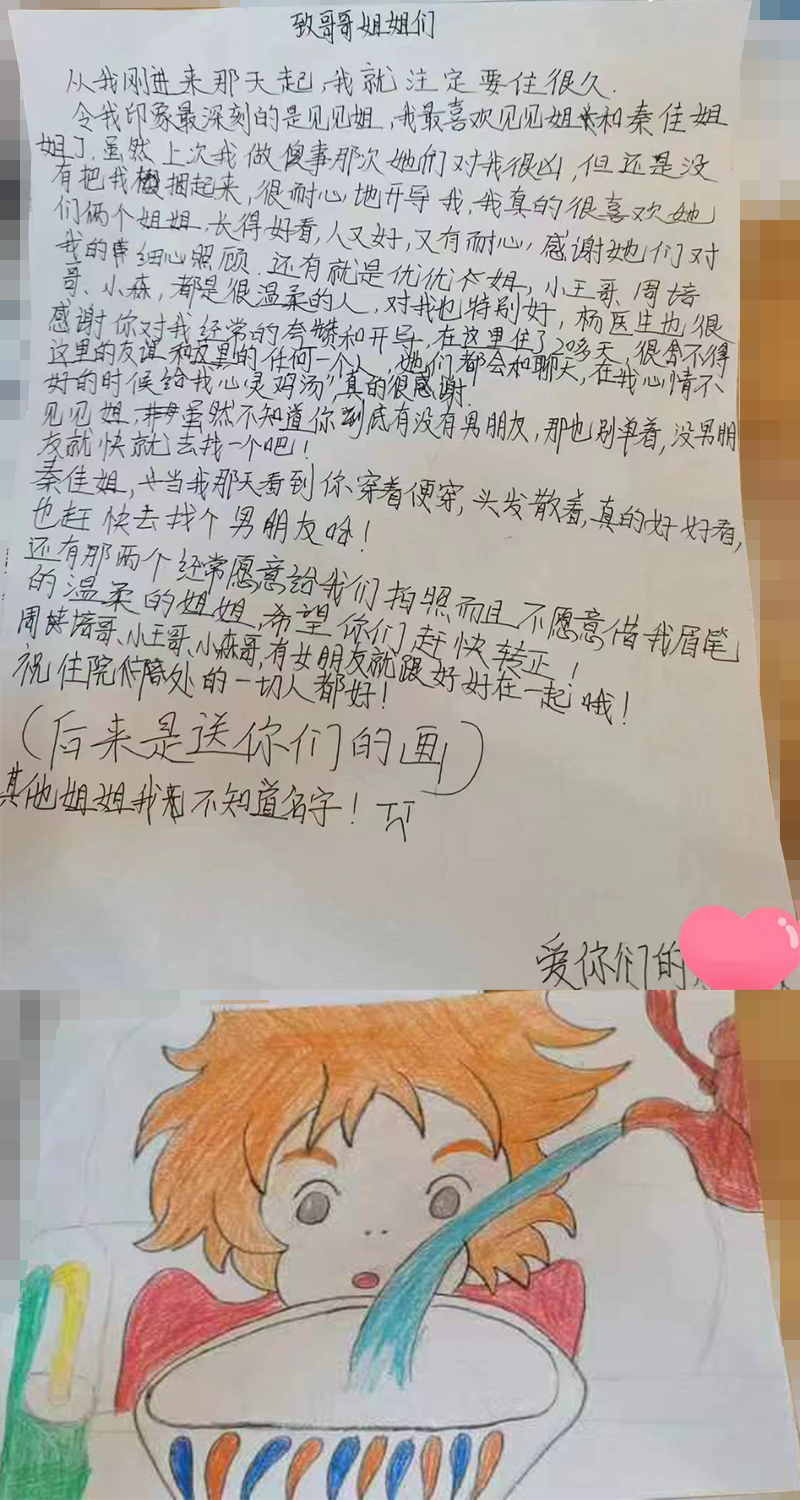 致哥哥姐姐们
从我刚进来那天起,我就注定要住很久.
令我印象最深刻的是见见姐,我最喜欢见见姐和秦佳姐
姐了.虽然上次我做傻事那次她们对我很凶,但还是没
有把我捆起来,很耐心地开导我,我真的很喜欢她
们俩个姐姐,长得好看,人又好,又有耐心,感谢她们对
我的细心照顾.还有就是优优姐,小王哥、周培
哥、小森,都是很温柔的人,对我也特别好,杨医生也很
感谢你对我经常的夸赞和开导,在这里住了20多天,很舍不得
这里的友谊和这里的任何一个人,她们都会和聊天,在我心情不
好的时候给我心灵鸡汤",真的很感谢.
见见姐,虽然不知道你到底有没有男朋友,那也别单着,没男朋
友就快就去找一个吧!
秦佳姐,当我那天看到你穿着便穿,头发散着,真的好好看,
也赶快去找个男朋友哦!
还有那两个经常愿意给我们拍照而且不愿意借我眉笔
的温柔的姐姐,希望你们赶快转正!
周培哥、小王哥、小森哥,有女朋友就跟好好在一起哦!
祝住院处的一切人都好!
(后来是送你们的画)
其他姐姐我不知道名字!
爱你们的